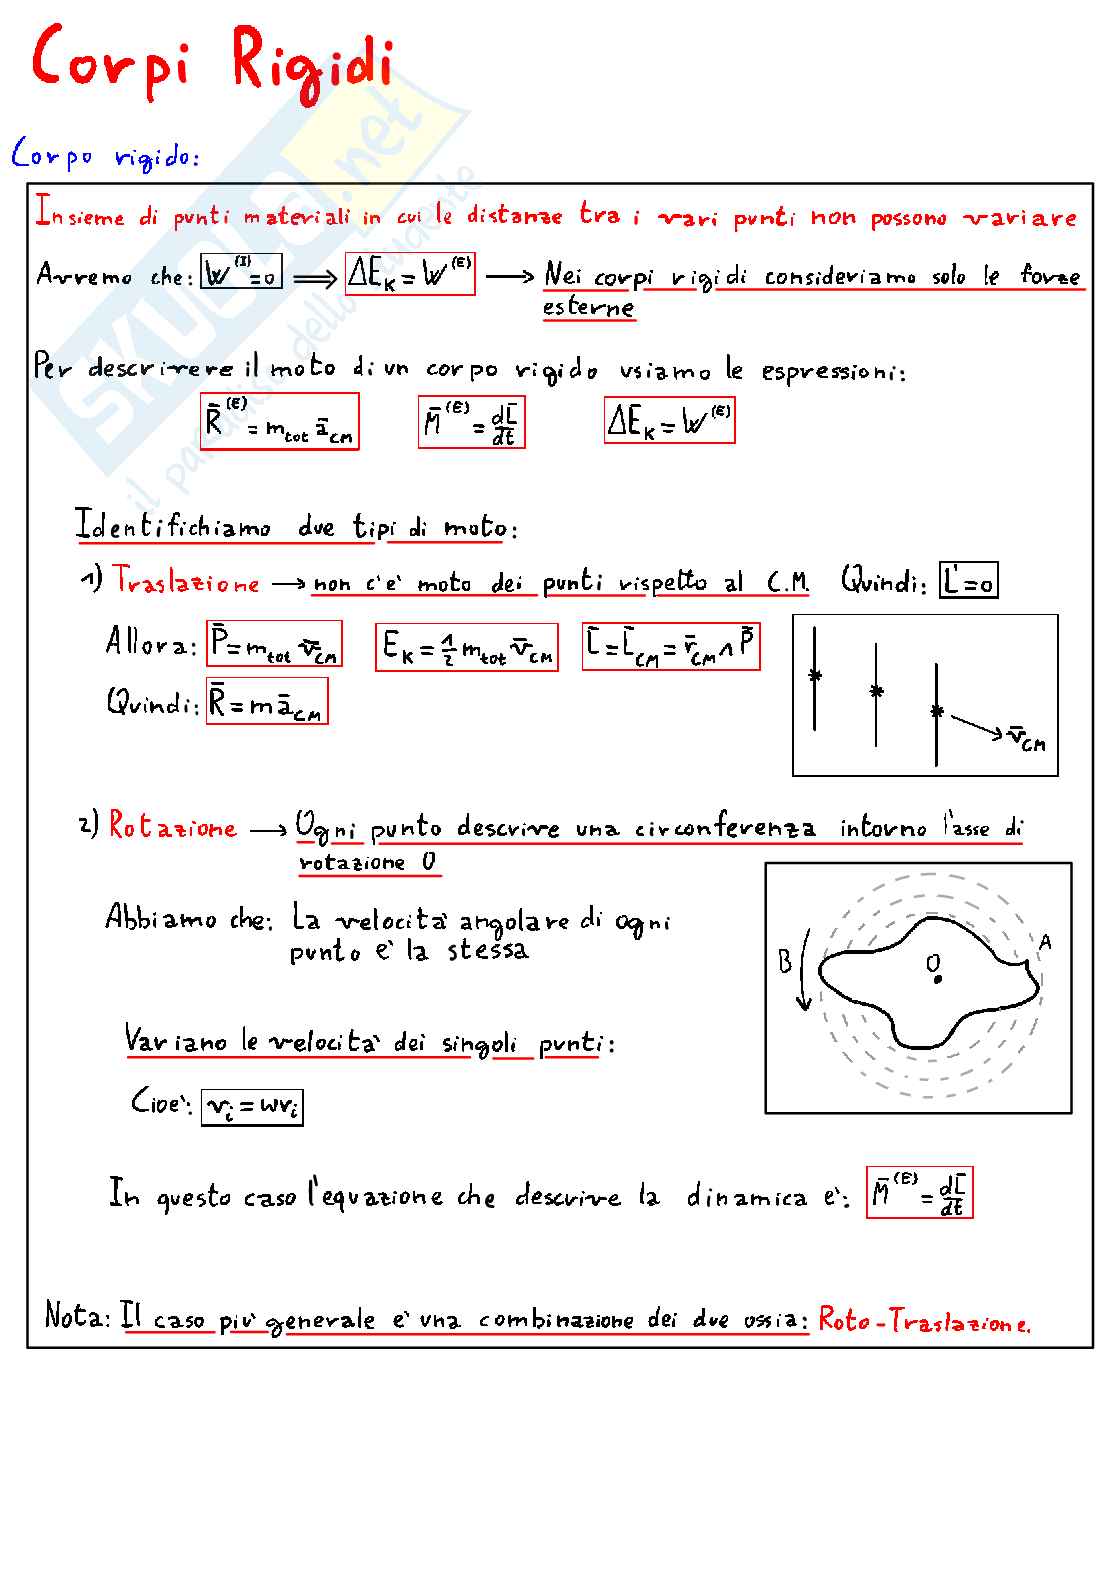 Corpi Rigidi
Corpo rigido:
Insieme di punti materiali in cui le distanze tra i vari punti non possono variare
Avremo che: W^(I)=0 ⟹ ΔE_K = W^(E) ⟶ Nei corpi rigidi consideriamo solo le forze
esterne
Per descrivere il moto di un corpo rigido usiamo le espressioni:
R̄^(E) = m_tot ā_CM   M̄^(E) = dL̄/dt   ΔE_K = W^(E)
Identifichiamo due tipi di moto:
1) Traslazione ⟶ non c'e' moto dei punti rispetto al C.M. Quindi: L'=0
Allora: P̄ = m_tot v̄_CM   E_K = 1/2 m_tot v̄_CM   L̄ = L̄_CM = r̄_CM ∧ P̄
Quindi: R̄ = m ā_CM
v̄_CM
2) Rotazione ⟶ Ogni punto descrive una circonferenza intorno l'asse di
rotazione O
Abbiamo che: La velocita' angolare di ogni
punto e' la stessa
A
B
O
Variano le velocita' dei singoli punti:
Cioe': v_i = wr_i
In questo caso l'equazione che descrive la dinamica e': M̄^(E) = dL̄/dt
Nota: Il caso piu' generale e' una combinazione dei due ossia: Roto-Traslazione.
SKUOLA.net
il paradiso dello studente